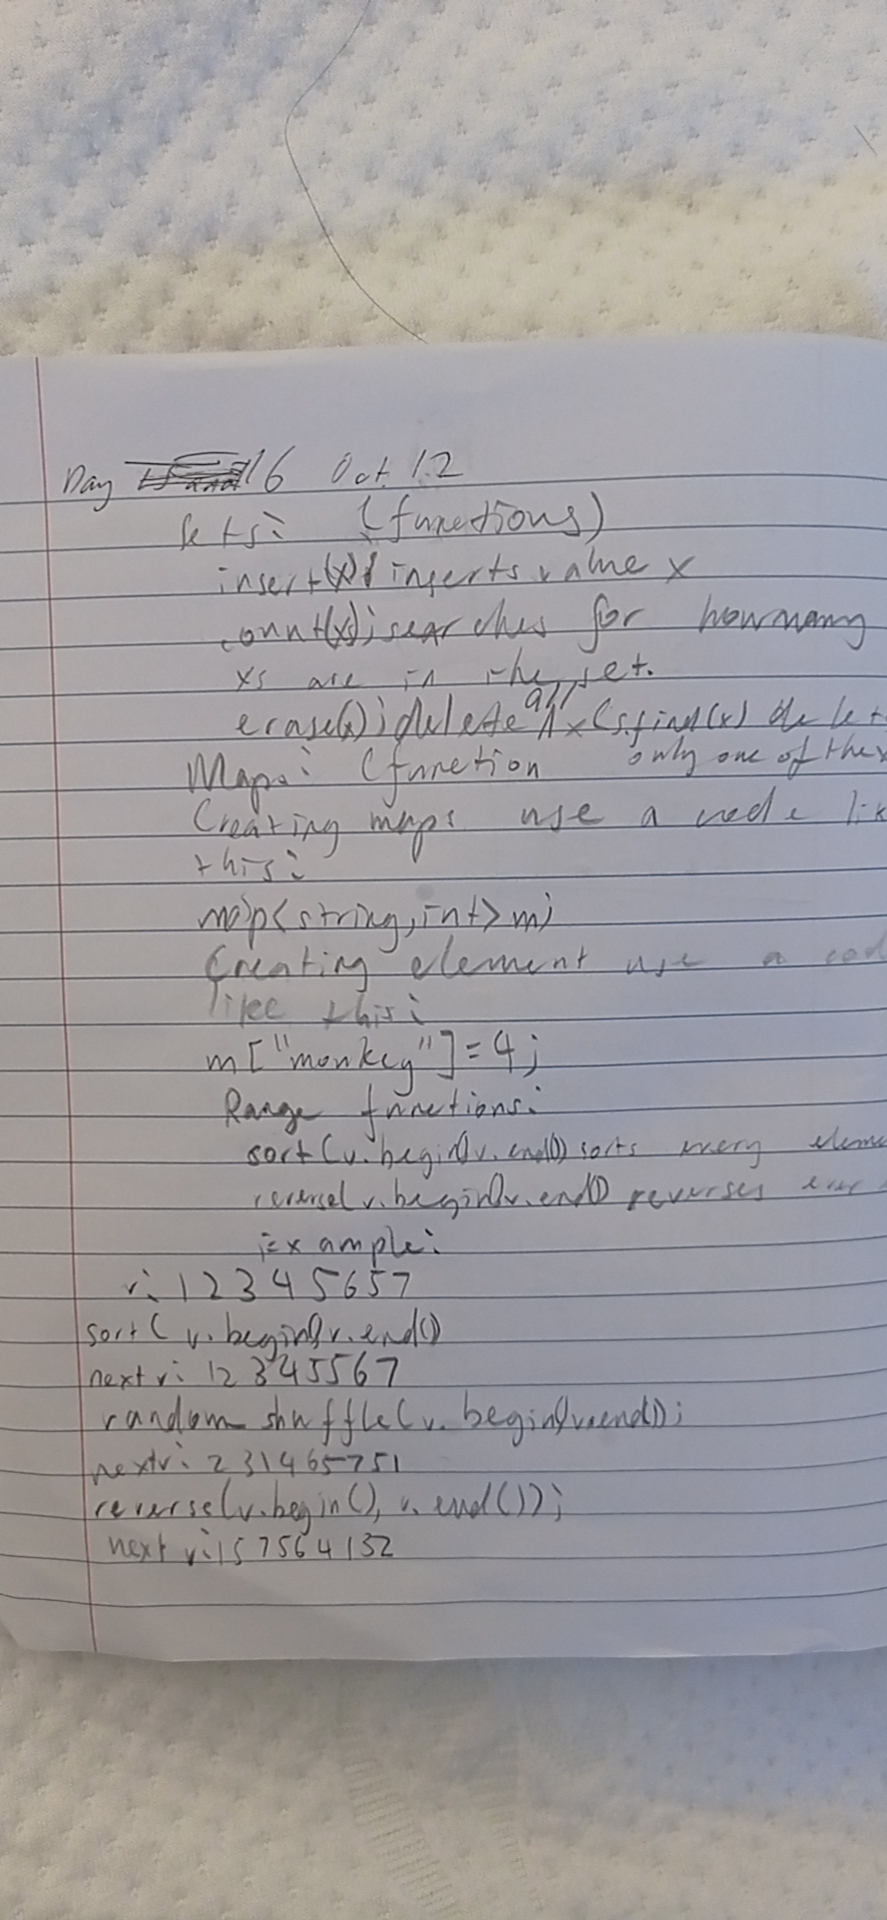 Day 16 Oct. 12
sets: (functions)
insert(x); inserts value x
count(x); searches for how many
xs are in the set.
erase(x); delete all x (s.find(x) delet
Maps: (function only one of the x
Creating maps use a code lik
this:
map<string,int> m;
Creating element use a cod
like this:
m["monkey"]=4;
Range functions:
sort(v.begin(),v.end()) sorts every eleme
reverse(v.begin(),v.end()) reverses ever
Example:
v: 1 2 3 4 5 6 5 7
sort(v.begin(),v.end()
next v: 12345567
random shuffle(v.begin(),v.end());
next v: 231465751
reverse(v.begin(), v.end());
next v: 157564132